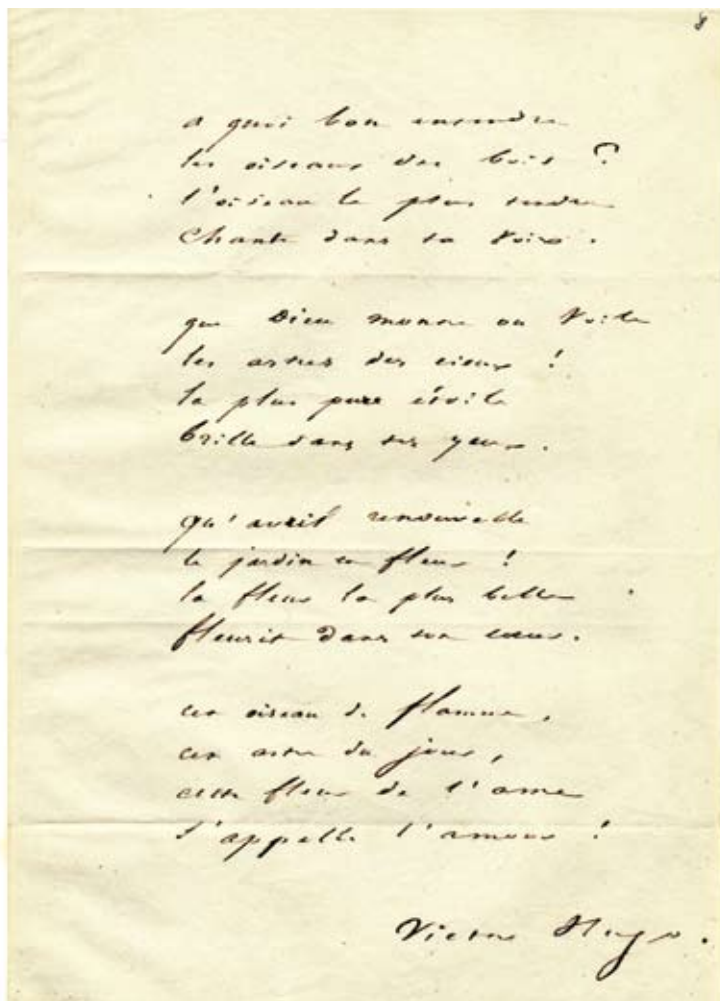 8
a quoi bon entendre
les oiseaux des bois ?
l'oiseau le plus tendre
chante dans ta voix.
que Dieu montre ou voile
les astres des cieux !
la plus pure étoile
brille dans tes yeux.
qu'avril renouvelle
le jardin en fleur !
la fleur la plus belle
fleurit dans ton cœur.
cet oiseau de flamme,
cet astre du jour,
cette fleur de l'ame
s'appelle l'amour !
Victor Hugo.